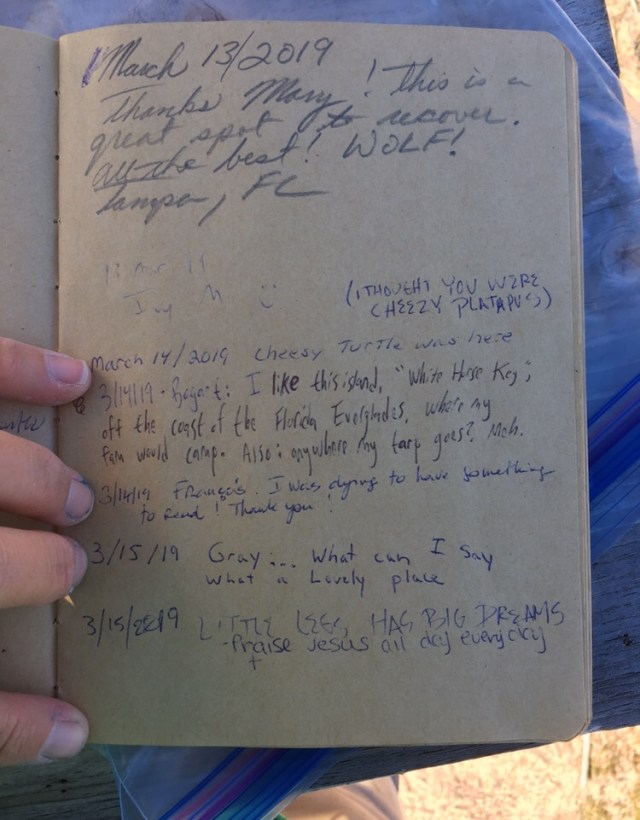 March 13/2019
Thanks Mary! This is a
great spot to recover.
all the best! WOLF!
Tampa, FL
13 Mar 19
Ivy M
(I THOUGHT YOU WERE
CHEEZY PLATAPUS)
March 14/2019 Cheesy Turtle was here
3/14/19 - Bogart: I like this island, "White Horse Key,"
off the coast of the Florida Everglades, where my
fam would camp. Also: anywhere my tarp goes? Meh.
3/14/19 François. I was dying to have something
to read! Thank you!
3/15/19 Gray... What can I Say
what a Lovely place
3/15/2019 LITTLE LEGS HAS BIG DREAMS
-Praise Jesus all day everyday